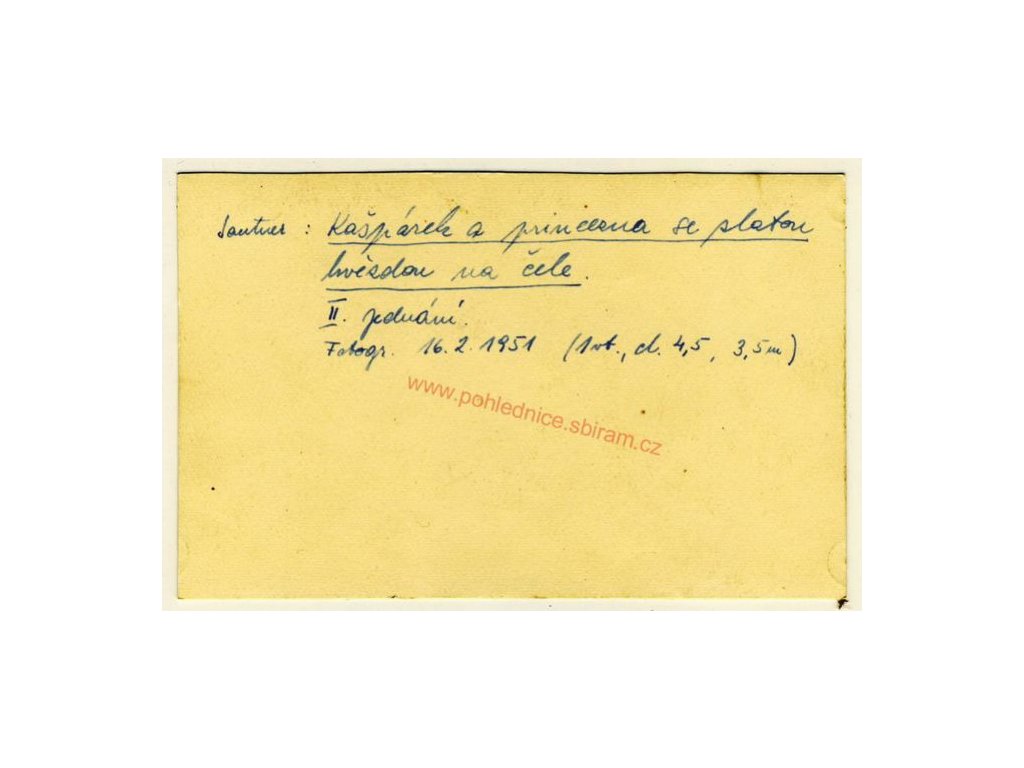 Santner : Kašpárek a princezna se zlatou
hvězdou na čele.
II. jednání.
Fotogr. 16.2.1951 (1 vt., cl. 4,5, 3,5 m)
www.pohlednice.sbiram.cz